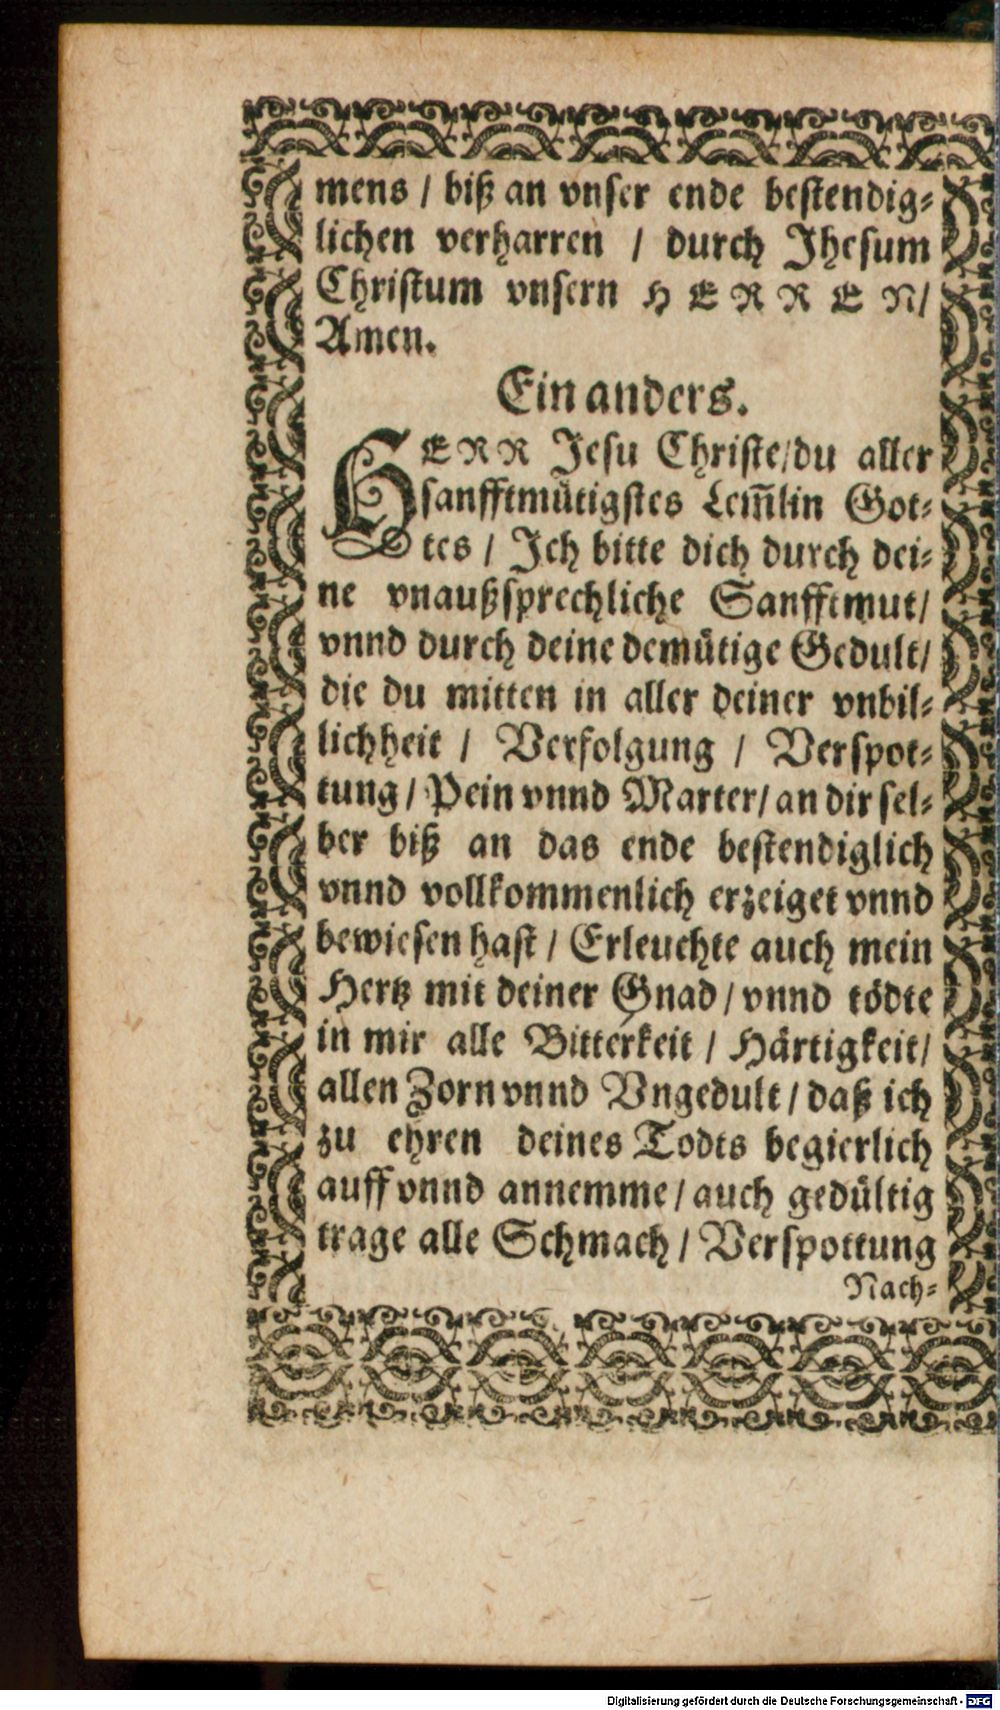 mens / biß an vnser ende bestendig⸗
lichen verharren / durch Jhesum
Christum vnsern HERREN/
Amen.
Ein anders.
HERR Jesu Christe/du aller
sanfftmütigstes Lem̃lin Got⸗
tes / Jch bitte dich durch dei⸗
ne vnaußsprechliche Sanfftmut/
vnnd durch deine demütige Gedult/
die du mitten in aller deiner vnbil⸗
lichheit / Verfolgung / Verspot⸗
tung / Pein vnnd Marter/ an dir sel⸗
ber biß an das ende bestendiglich
vnnd vollkommenlich erzeiget vnnd
bewiesen hast / Erleuchte auch mein
Hertz mit deiner Gnad / vnnd tödte
in mir alle Bitterkeit / Härtigkeit/
allen Zorn vnnd Vngedult / daß ich
zu ehren deines Todts begierlich
auff vnnd annemme / auch gedültig
trage alle Schmach / Verspottung
Nach⸗
Digitalisierung gefördert durch die Deutsche Forschungsgemeinschaft - DFG